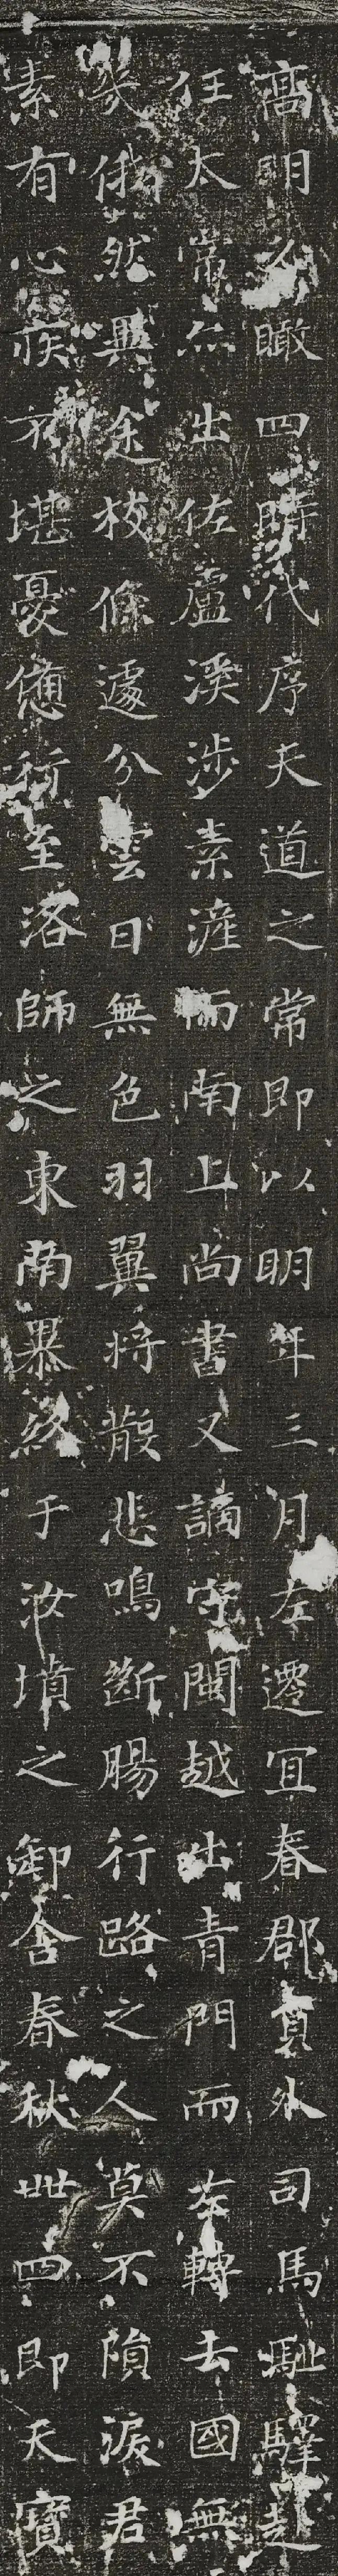 高明之瞰四時代序天道之常即以明年三月左遷宜春郡員外司馬馳驛赴
任太常亦出佐盧溪涉素滻而南上尚書又謫守閩越出青門而左轉去國無
幾俄然異途枝條遽分雲日無色羽翼將散悲鳴斷腸行路之人莫不隕淚君
素有心疾不堪憂憊行至洛師之東南暴終于汝墳之卸舍春秋卌四即天寶